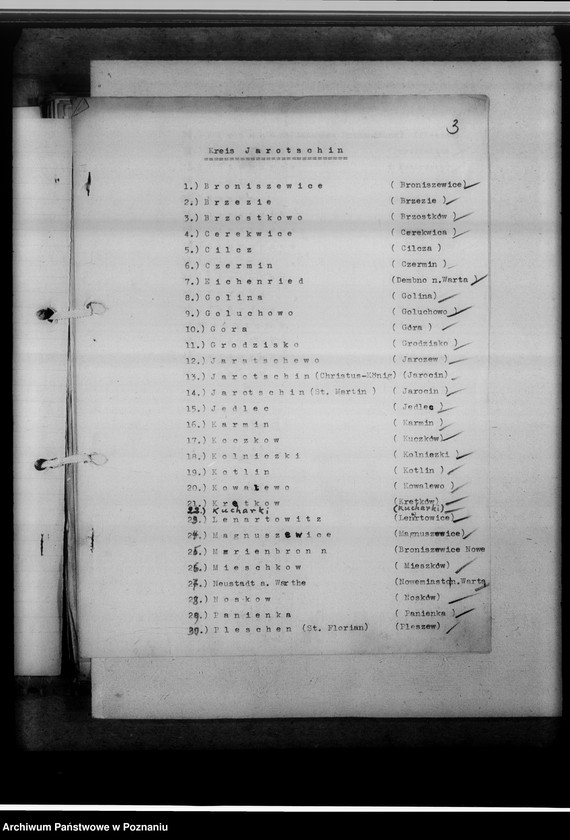 3
Kreis Jarotschin
1.) Broniszewice ( Broniszewice)
2.) Brzezie ( Brzezie )
3.) Brzostkowo ( Brzostków )
4.) Cerekwice ( Cerekwica )
5.) Cilcz ( Cilcza )
6.) Czermin ( Czermin )
7.) Eichenried (Dembno n.Warta )
8.) Golina ( Golina)
9.) Goluchowo ( Goluchowo )
10.) Góra ( Góra )
11.) Grodzisko ( Grodzisko )
12.) Jaratschewo ( Jarczew )
13.) Jarotschin (Christus-König) (Jarocin)
14.) Jarotschin (St. Martin ) ( Jarocin )
15.) Jedlec ( Jedlec )
16.) Karmin ( Karmin )
17.) Koczkow ( Kuczków)
18.) Kolniczki ( Kolniszki )
19.) Kotlin ( Kotlin )
20.) Kowalewo ( Kowalewo )
21.) Kretkow (Kretków)
22.) Kucharki (Kucharki)
23.) Lenartowitz (Lenrtowice)
24.) Magnuszewice (Magnuszewice)
25.) Marienbronn (Broniszewice Nowe
26.) Mieschkow ( Mieszków )
27.) Neustadt a. Warthe (Nowemiasto n.Warta
28.) Noskow ( Nosków )
29.) Panienka ( Panienka )
30.) Pleschen (St. Florian) (Pleszew)
Archiwum Państwowe w Poznaniu